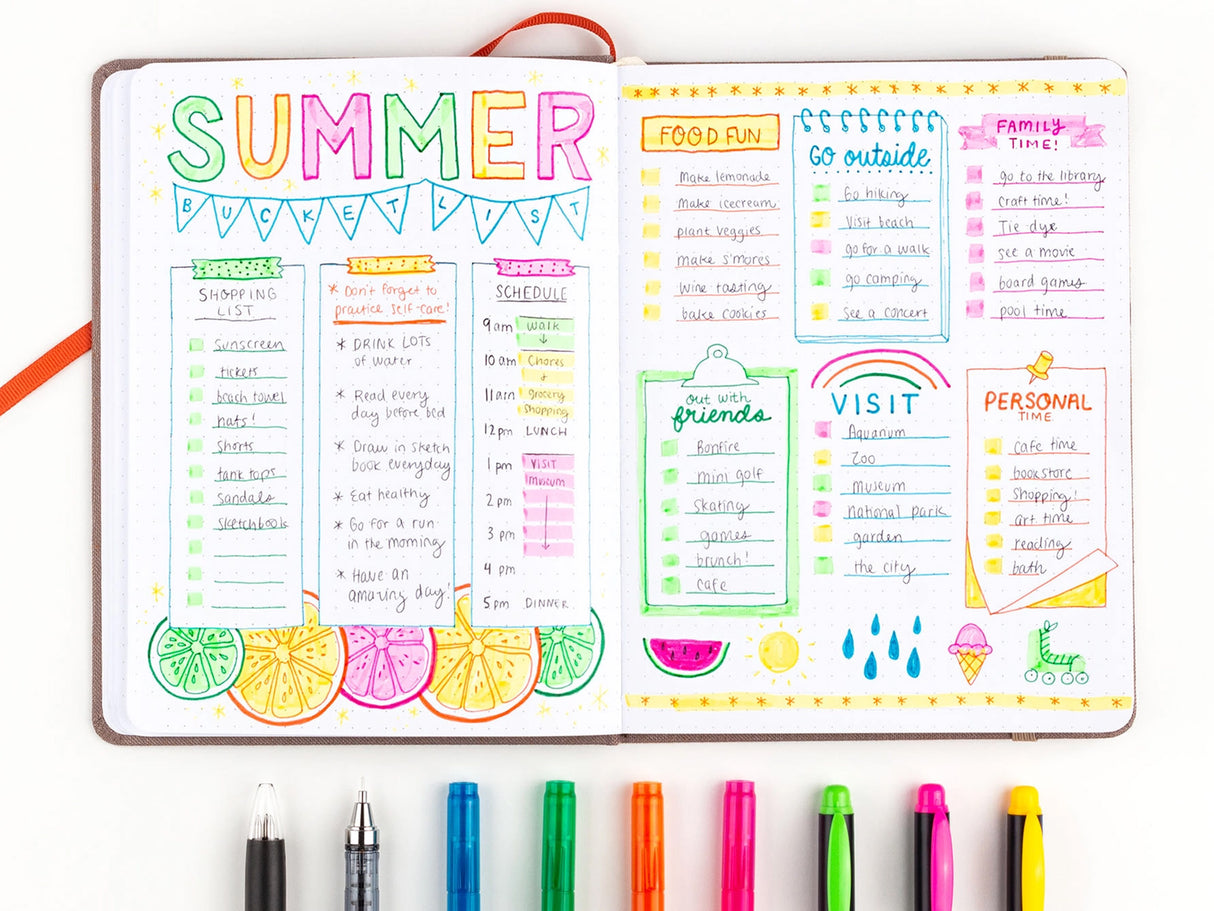 SUMMER
BUCKET LIST
SHOPPING
LIST
Sunscreen
tickets
beach towel
hats!
Shorts
tank tops
Sandals
Sketchbook
* Don't forget to
practice self-care!
* DRINK LOTS
of water
* Read every
day before bed
* Draw in sketch
book everyday
* Eat healthy
* Go for a run
in the morning
* Have an
amazing day!
SCHEDULE
9am walk
10am Chores
+
11am grocery
shopping
12pm LUNCH
1pm VISIT
Museum
2pm
3pm
4pm
5pm DINNER
FOOD FUN
Make lemonade
Make icecream
plant veggies
make s'mores
wine tasting
bake cookies
GO outside
Go hiking
Visit beach
go for a walk
go camping
see a concert
FAMILY
TIME!
go to the library
craft time!
Tie dye
see a movie
board games
pool time
out with
friends
Bonfire
mini golf
skating
games
brunch!
cafe
VISIT
Aquarium
Zoo
Museum
national park
garden
the city
PERSONAL
TIME
cafe time
bookstore
Shopping!
art time
reading
bath